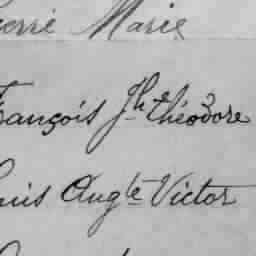 ierre Marie
François Jh théodore
ouis Augte Victor